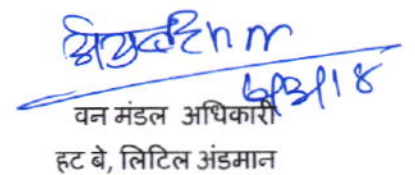 6/3/18
वन मंडल अधिकारी
हट बे, लिटिल अंडमान